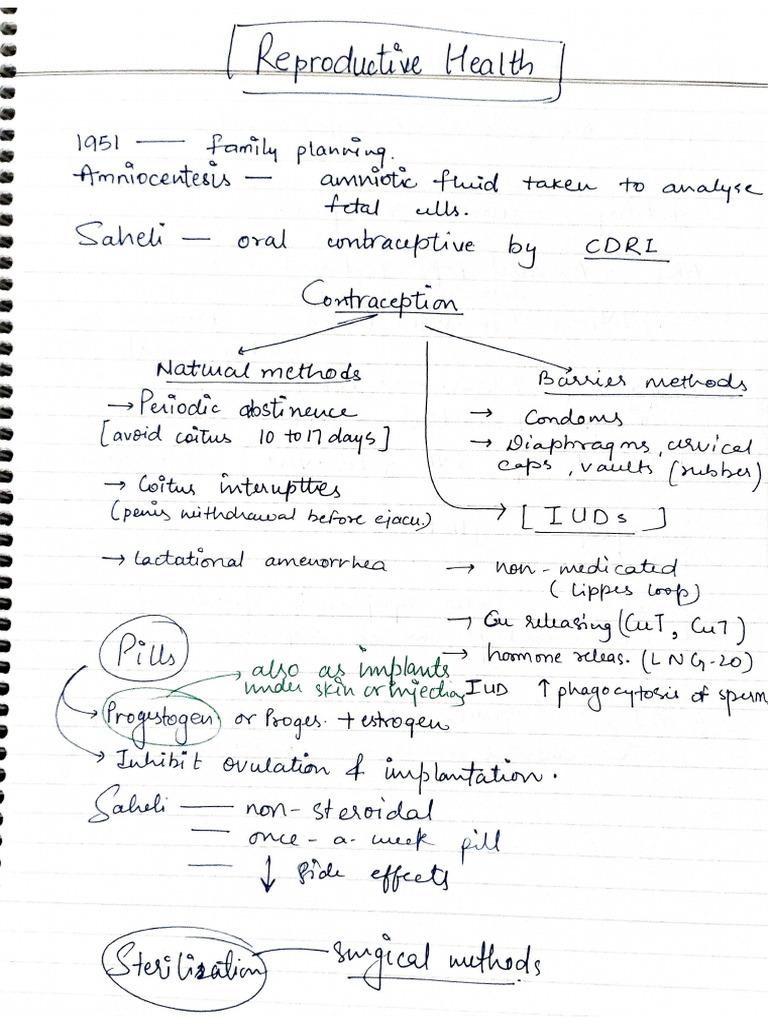 Reproductive Health
1951 — family planning.
Amniocentesis — amniotic fluid taken to analyse
fetal cells.
Saheli — oral contraceptive by CDRI
Contraception
Natural methods
→ Periodic abstinence
[avoid coitus 10 to 17 days]
→ Coitus interupttes
(penis withdrawal before ejacu.)
→ Lactational amenorrhea
Barrier methods
→ Condoms
→ Diaphragms, cervical
caps, vaults (rubber)
→ [IUDs]
→ non-medicated
(Lippes loop)
→ Cu releasing (CuT, Cu7)
→ hormone releas. (LNG-20)
IUD ↑ phagocytosis of sperm
Pills
→ also as implants
under skin or injection
→ Progestogen or Proges. + estrogen
→ Inhibit ovulation & implantation.
Saheli — non-steroidal
— once-a-week pill
— ↓ side effects
Sterilization — surgical methods